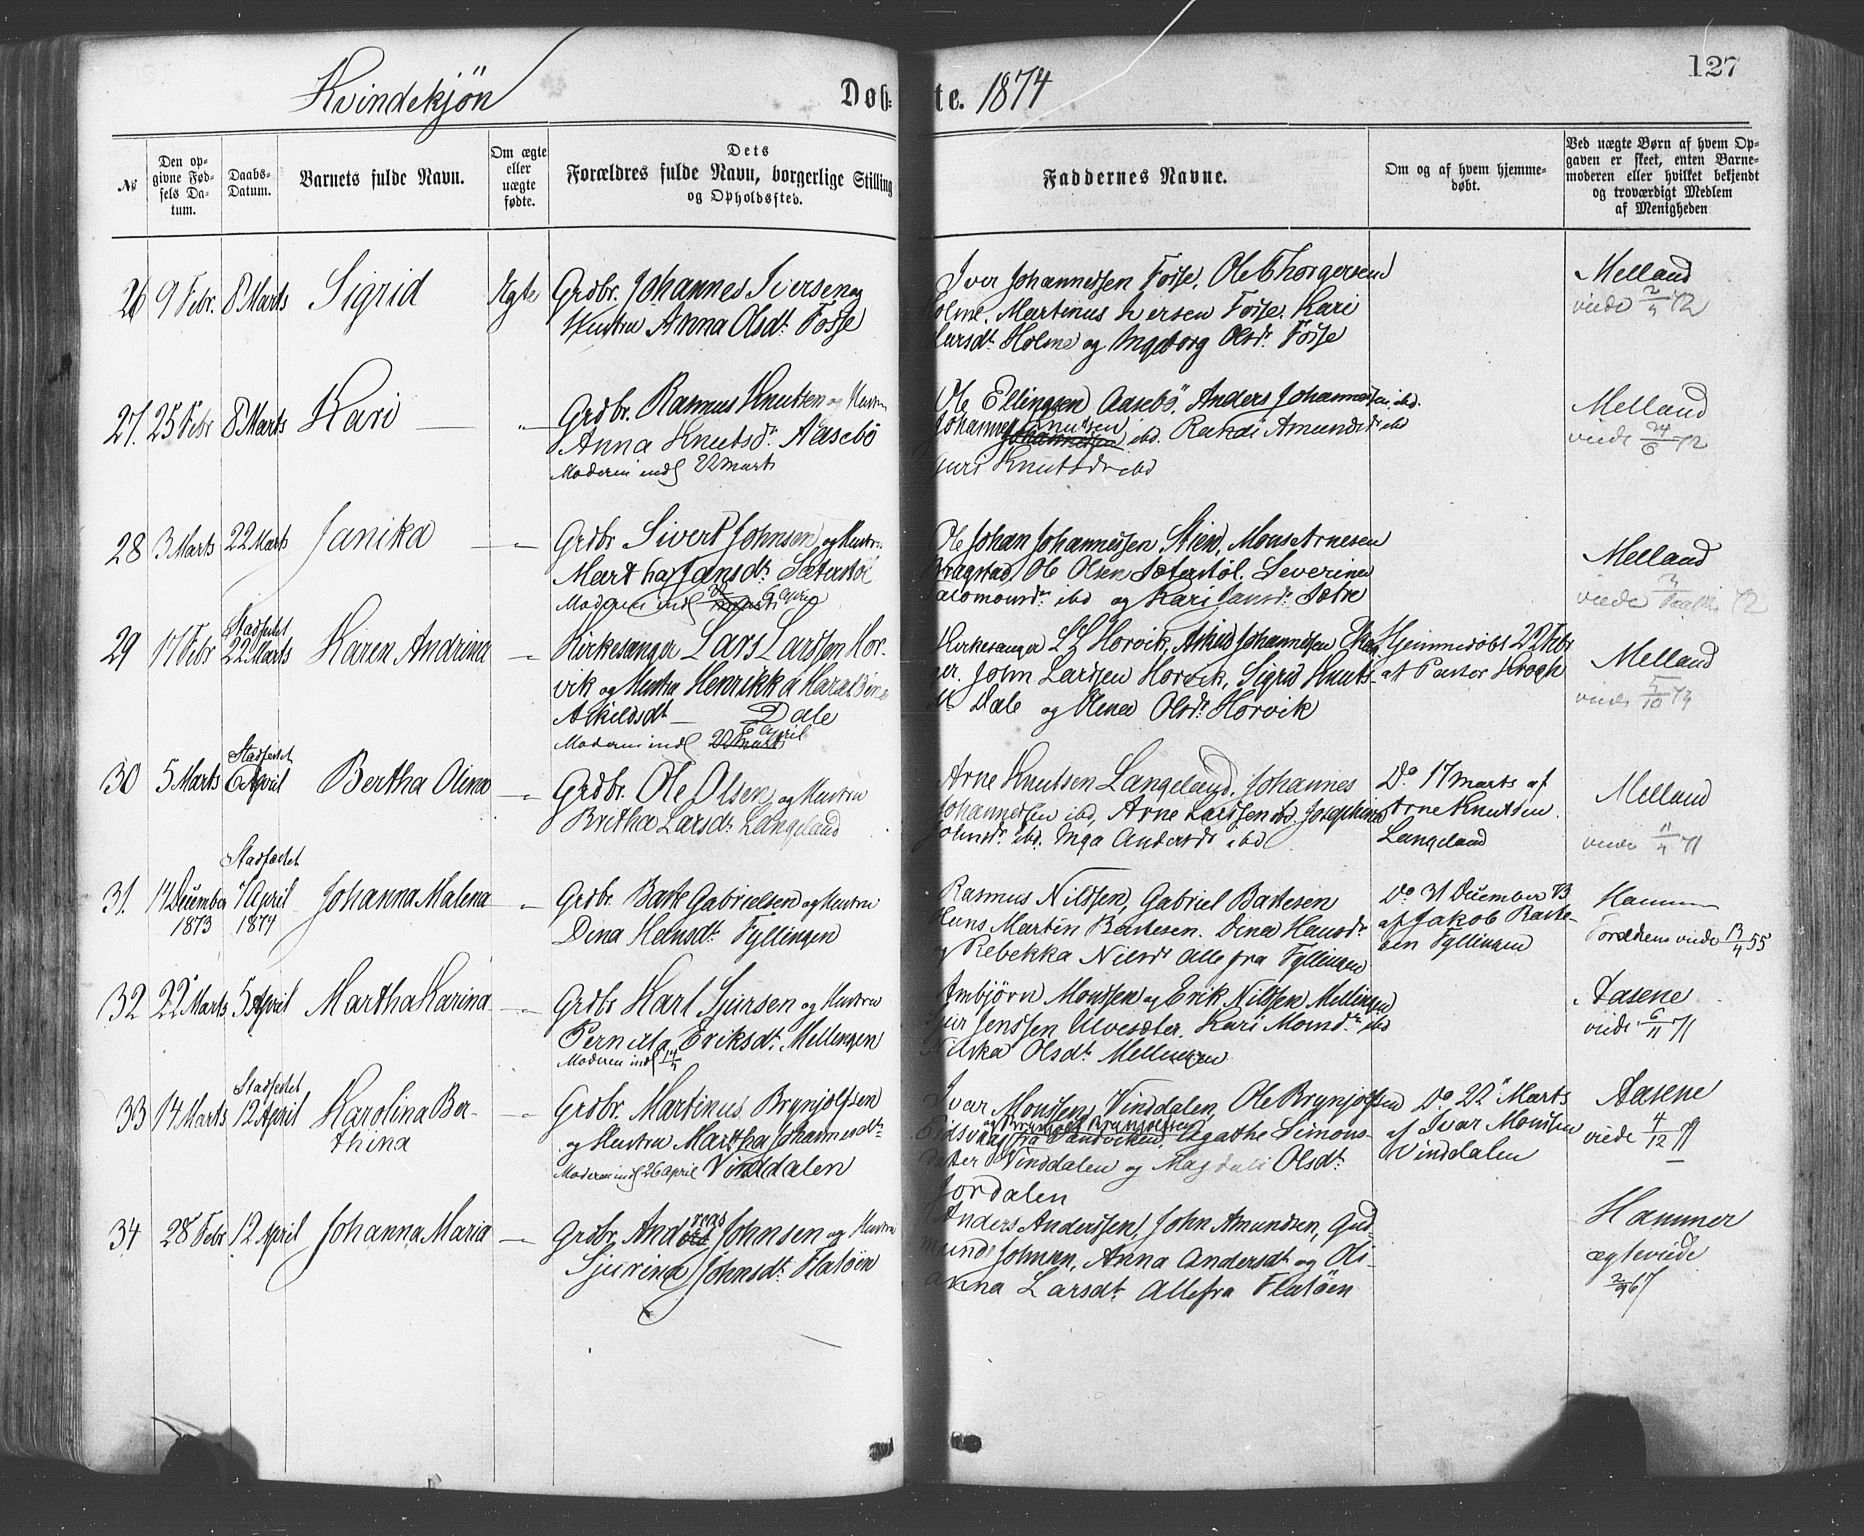 127
Kvindekjön Døb-te. 1874
No
Den opgivne Fødsels Datum.
Daabs-Datum.
Barnets fulde Navn.
Om ægte eller uægte fødte.
Dets Forældres fulde Navn, borgerlige Stilling og Opholdssted.
Faddernes Navne.
Om og af hvem hjemmedøbt.
Ved uægte Børn af hvem Opgaven er skeet, enten Barnemoderen eller hvilket bekjendt og troværdigt Medlem af Menigheden
26 9 Febr. 8 Marts Sigrid Ægte
Grdbr. Johannes Iversen og
Hustru Anna Olsdt. Fosse
Iver Johannessen Fosse. Ole Thorgersen
Holme. Martinus Iversen Fosse. Kari
Larsdt. Holme og Ingeborg Olsdr. Fosse
Melland
viede 2/4 72
27. 25 Febr 8 Marts Kari — "
Grdbr. Rasmus Knutsen og Hustru
Anna Knutsdr. Aasebö
Moderen indl 22 marts
Ole Ellingsen Aasebö. Anders Johannessen ibd.
Johannes Knutsen ibd. Rakel Amundsdr ibd
Guri Knutsdr ibd
Melland
viede 24/6 72
28 3 Marts 22 Marts Janika — "
Grdbr Sivert Johnsen og Hustru
Martha Jansdt. Sæterstöl
Moderen indl 6 april
Ole Johan Johannessen Stien, Mons Arnesen
Kragstad, Ole Olsen Sæterstöl. Severine
Salomonsdr ibd og Kari Jansdr. Sætre
Melland
viede 72
29 17 Febr Stadfestet 22 Marts Karen Andrina "
Kirkesanger Lars Larssen Hor-
vik og Hustru Henrikka Haraldine
Askildsdt — Dale
Moderen indl 22 mart 6 April
Kirkesanger L L Horvik, Johannessen
John Larssen Horvik, Sigrid Knuts-
dt Dale og Olena Olsdr. Horvik
Hjemmedöbt 22 Febr
af Pastor Krogh
Melland
viede 5/10 73
30 5 Marts Stadfestet 6 April Bertha Olina "
Grdbr. Ole Olsen og Hustru
Britha Larsdr. Langeland
Arne Knutsen Langeland, Johannes
Johannessen ibd, Arne Larssen ibd. Josephine
Johnsdr. ibd. Inga Andersdr ibd
Do. 17 marts af
Arne Knutsen
Langeland
Melland
viede 11/4 71
31. 14 December 1873 Stadfæstet 1 April 1874 Johanna Malena "
Grdbr. Barke Gabrielsen og Hustru
Dina Hansdt. Fyllingen
Rasmus Nilssen, Gabriel Barkesen
Hans Martin Barkesen. Dina Hansdr
og Rebekka Nilsdr alle fra Fyllingen
Do 31 December 73
af Jakob Barke-
sen Fyllingen
Hammer
Forældrene viede 13/4 55
32 22 Marts 5 April Martha Karina "
Grdbr Karl Sjursen og Hustru
Pernilla Eriksdt. Mellingen
Moderen indl 14/5
Ambjörn Monssen og Erik Nilssen Mellingen
Jenssen Ulvesæter. Kari Monsdr. ibd
Nilska Olsdt Mellingen
Aasene
viede 6/11 71
33 14 Marts Stadfestet 12 April Karolina Ber-
thina "
Grdbr. Martinus Brynjolfsen
og Hustru Martha Johannesdt
Moderen indl 26 april Vinddalen
Ivar Monssen Vinddalen, Ole Brynjolfsen
Eidsvaag fra Sandviken, Agathe Simons-
datter Vinddalen og Magdali Olsdt.
Jordalen
Do 22 Marts
af Ivar Monssen
Vinddalen
Aasene
viede 4/12 71
34 28 Febr 12 April Johanna Maria "
Grdbr. Andreas Johnsen og Hustru
Sjurina Johnsdt. Flatöen
Anders Anderssen, John Amundsen, Gud-
mund Johnsen, Anna Andersdt og Oli-
anna Larsdt. Alle fra Flatöen
Hammer
ægteviede
2/9 67